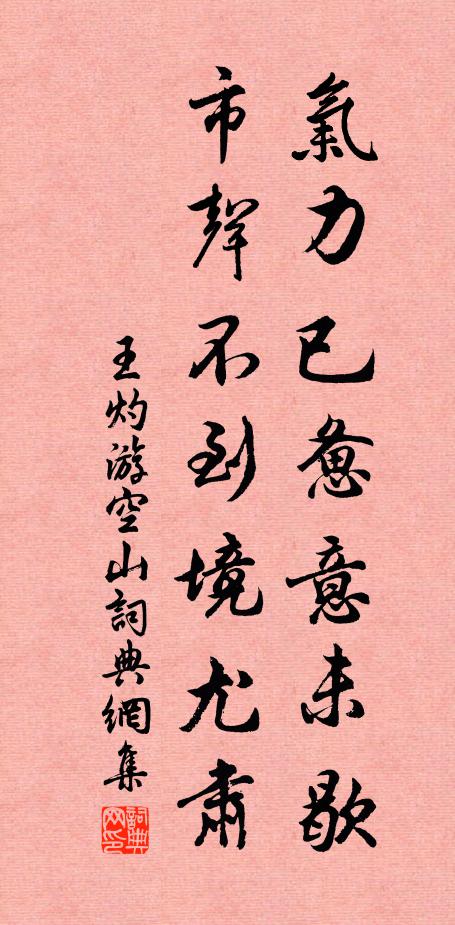 氣力已惫意未歇
市聲不到境尤肅
王灼游空山詞典網集
詞典网印